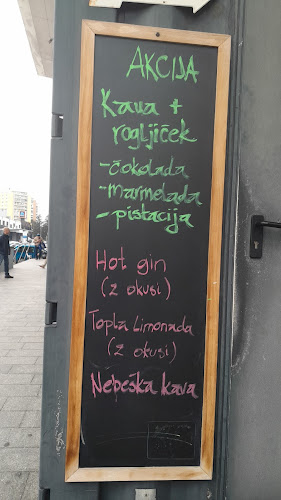 AKCIJA
Kava +
rogljiček
- čokolada
- marmelada
- pistacija
Hot gin
(z okusi)
Topla Limonada
(z okusi)
Nebeška kava